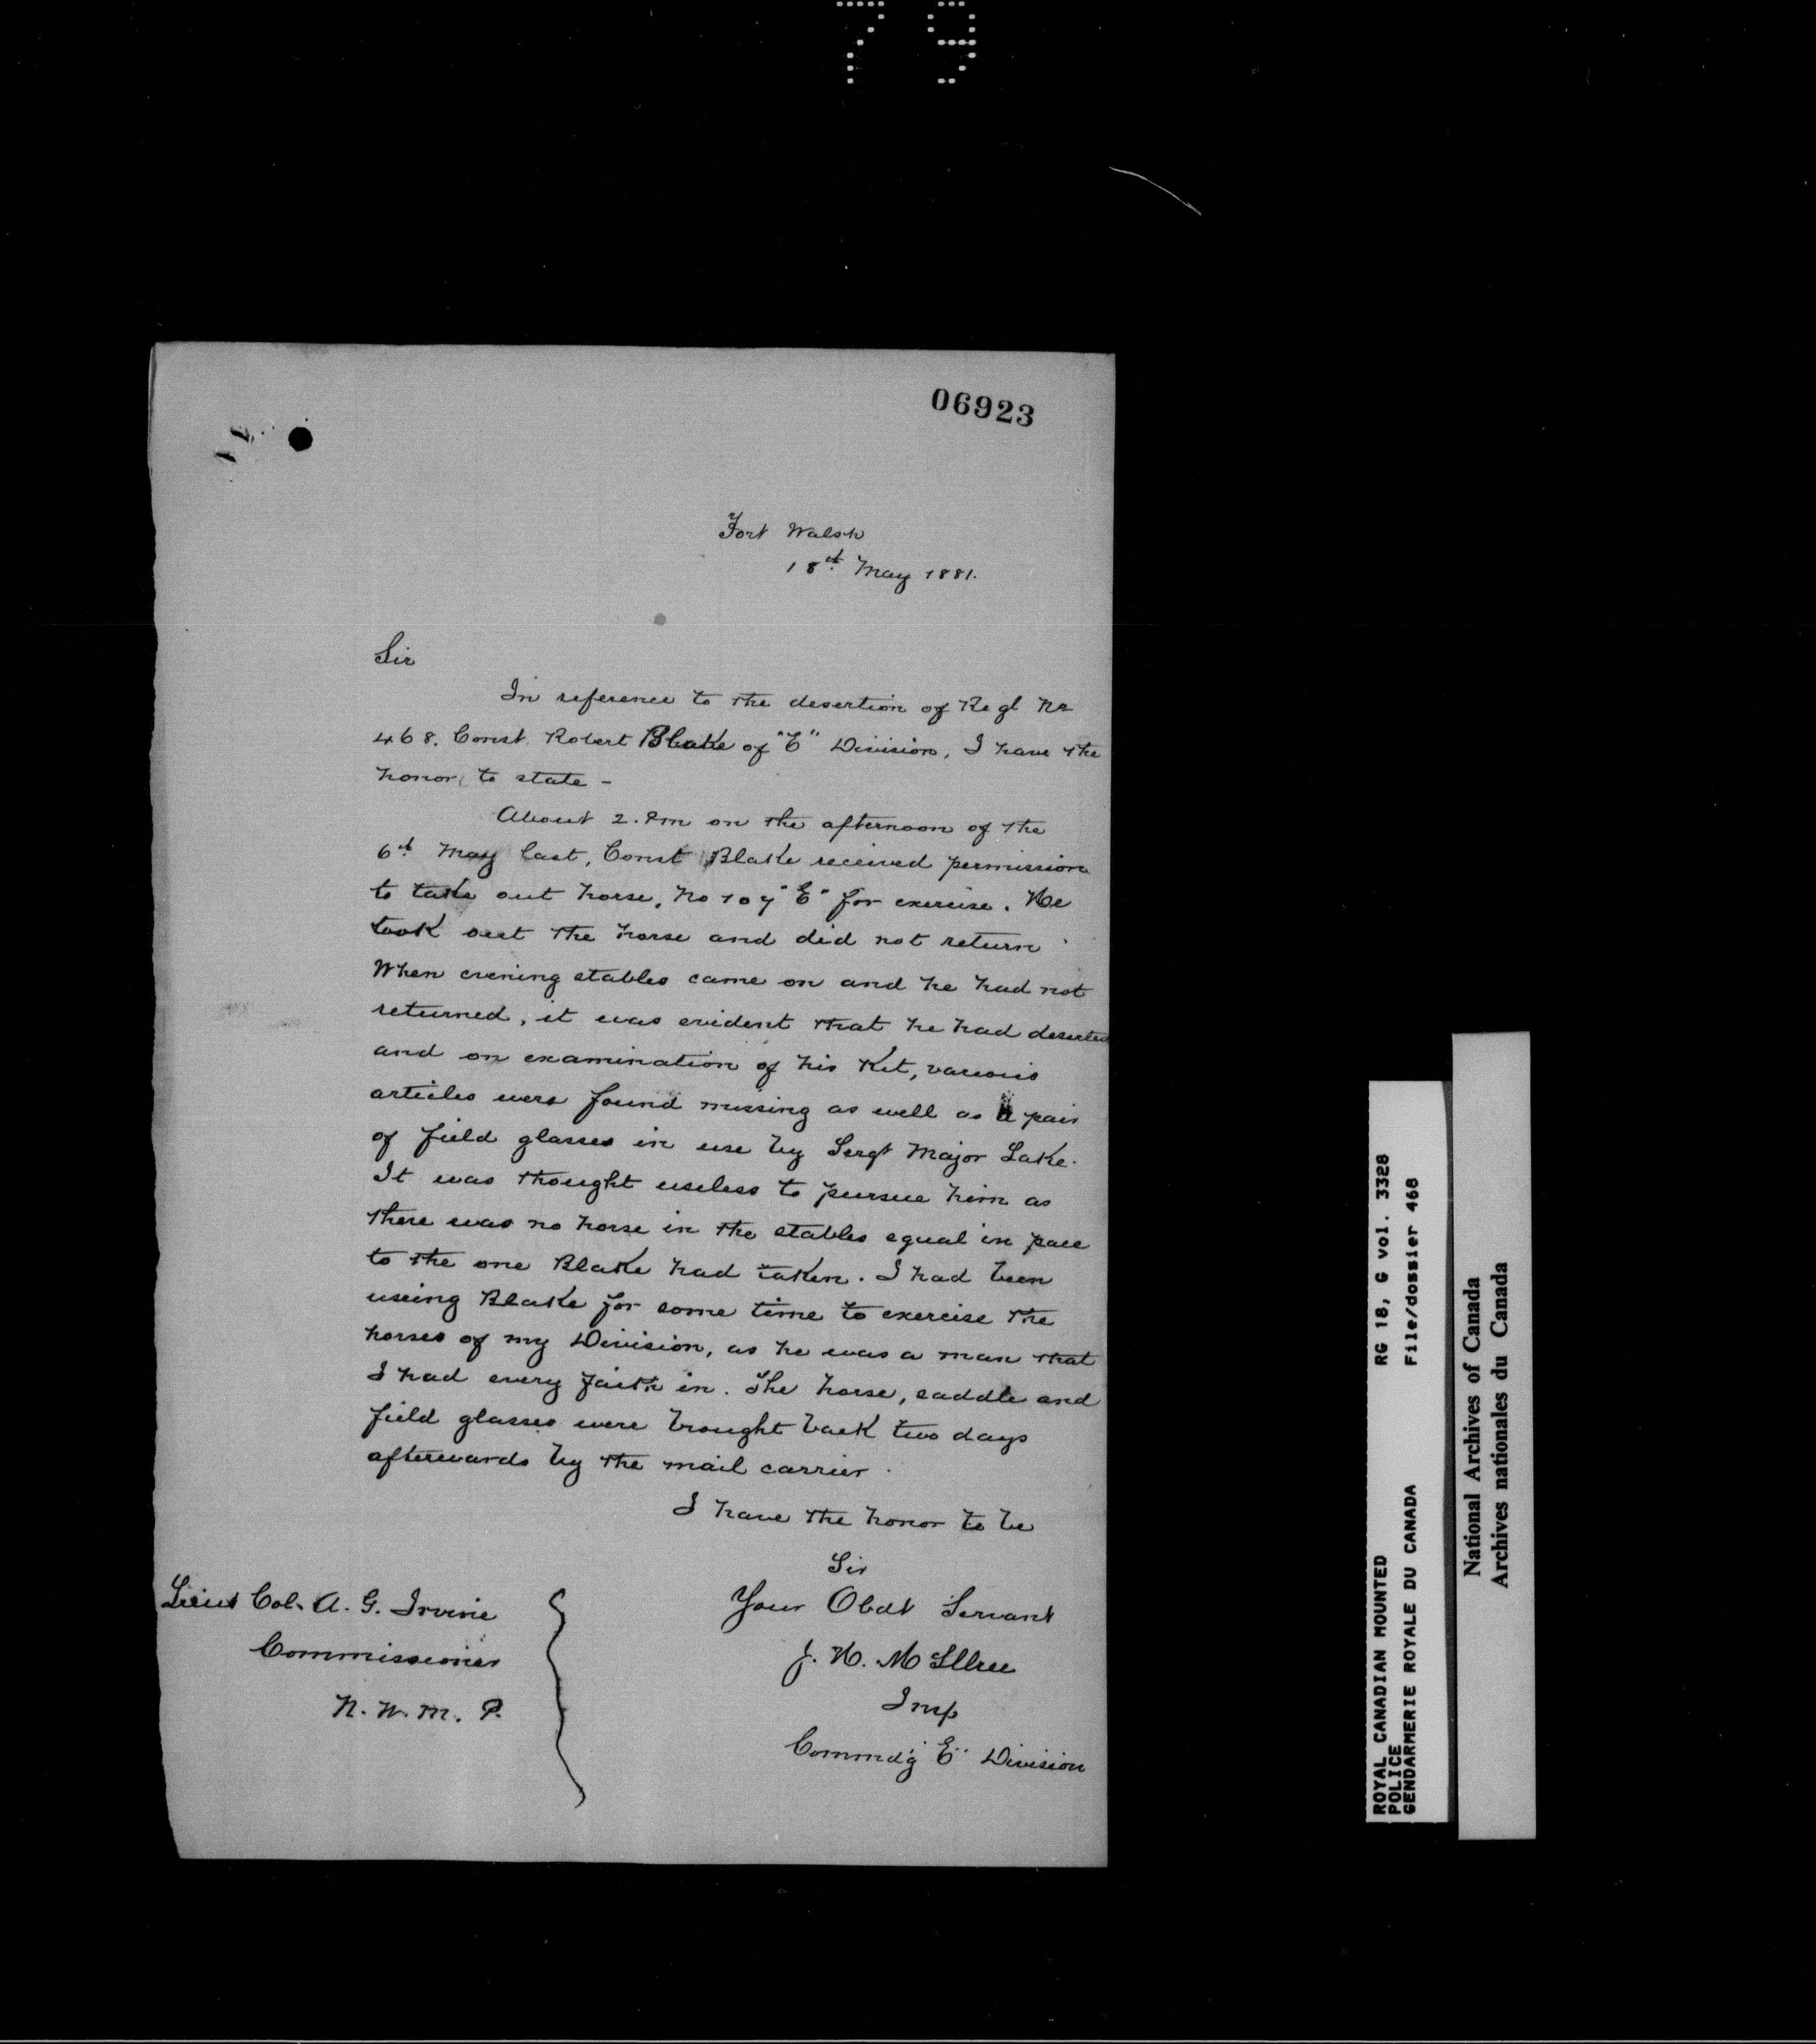 79
06923
Fort Walsh
18th May 1881.
Sir
In reference to the desertion of Regl No
468. Const. Robert Blake of "E" Division, I have the
honor to state -
About 2. Pm on the afternoon of the
6th May last, Const Blake received permission
to take out horse, No 107 "E" for exercise. He
took out the horse and did not return
When evening stables came on and he had not
returned, it was evident that he had deserted
and on examination of his Kit, various
articles were found missing as well as a pair
of field glasses in use by Sergt Major Lake.
It was thought useless to pursue him as
there was no horse in the stables equal in pace
to the one Blake had taken. I had been
useing Blake for some time to exercise the
horses of my Division, as he was a man that
I had every faith in. The horse, saddle and
field glasses were brought back two days
afterwards by the mail carrier.
I have the honor to be
Sir
Your Obdt Servant
J. H. McIllree
Insp
Commd'g "E" Division
Lieut Col. A. G. Irvine
Commissioner
N. W. M. P.
ROYAL CANADIAN MOUNTED RG 18, G vol. 3328
POLICE
GENDARMERIE ROYALE DU CANADA File/dossier 468
National Archives of Canada
Archives nationales du Canada